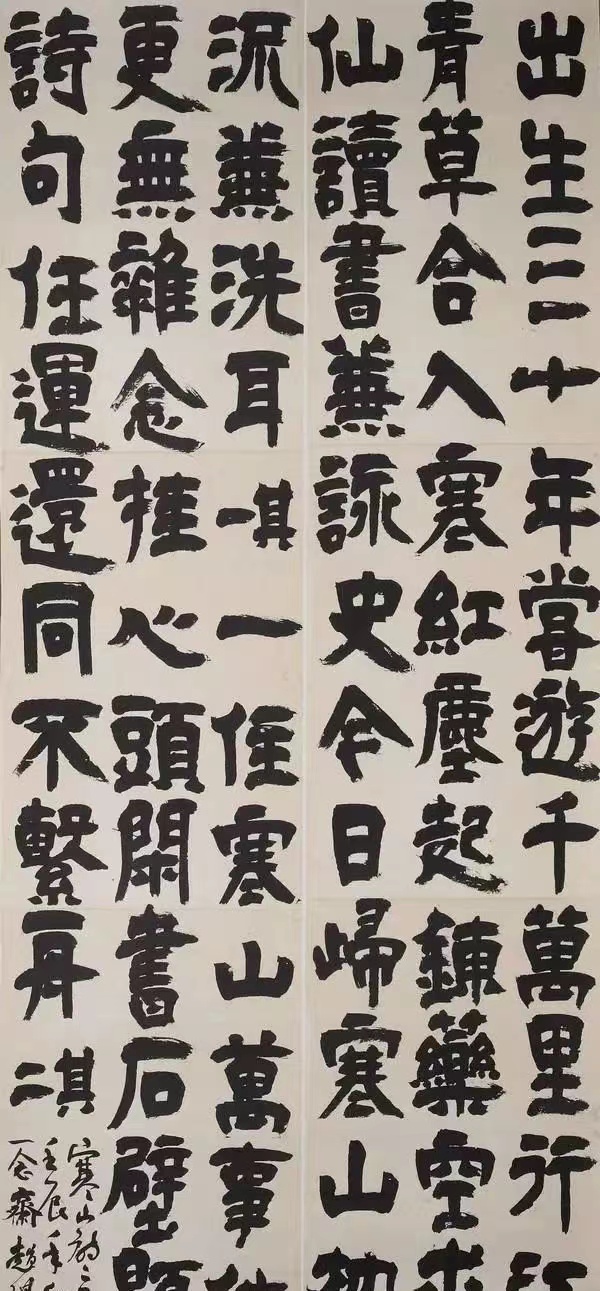 出生三十年嘗遊千萬里行江
青草合入塞紅塵起鍊藥空求
仙讀書兼詠史今日歸寒山枕
流兼洗耳其一一住寒山萬事休
更無雜念挂心頭閑書石壁題
詩句任運還同不繫舟其二
寒山詩二
壬辰年
一念齋趙